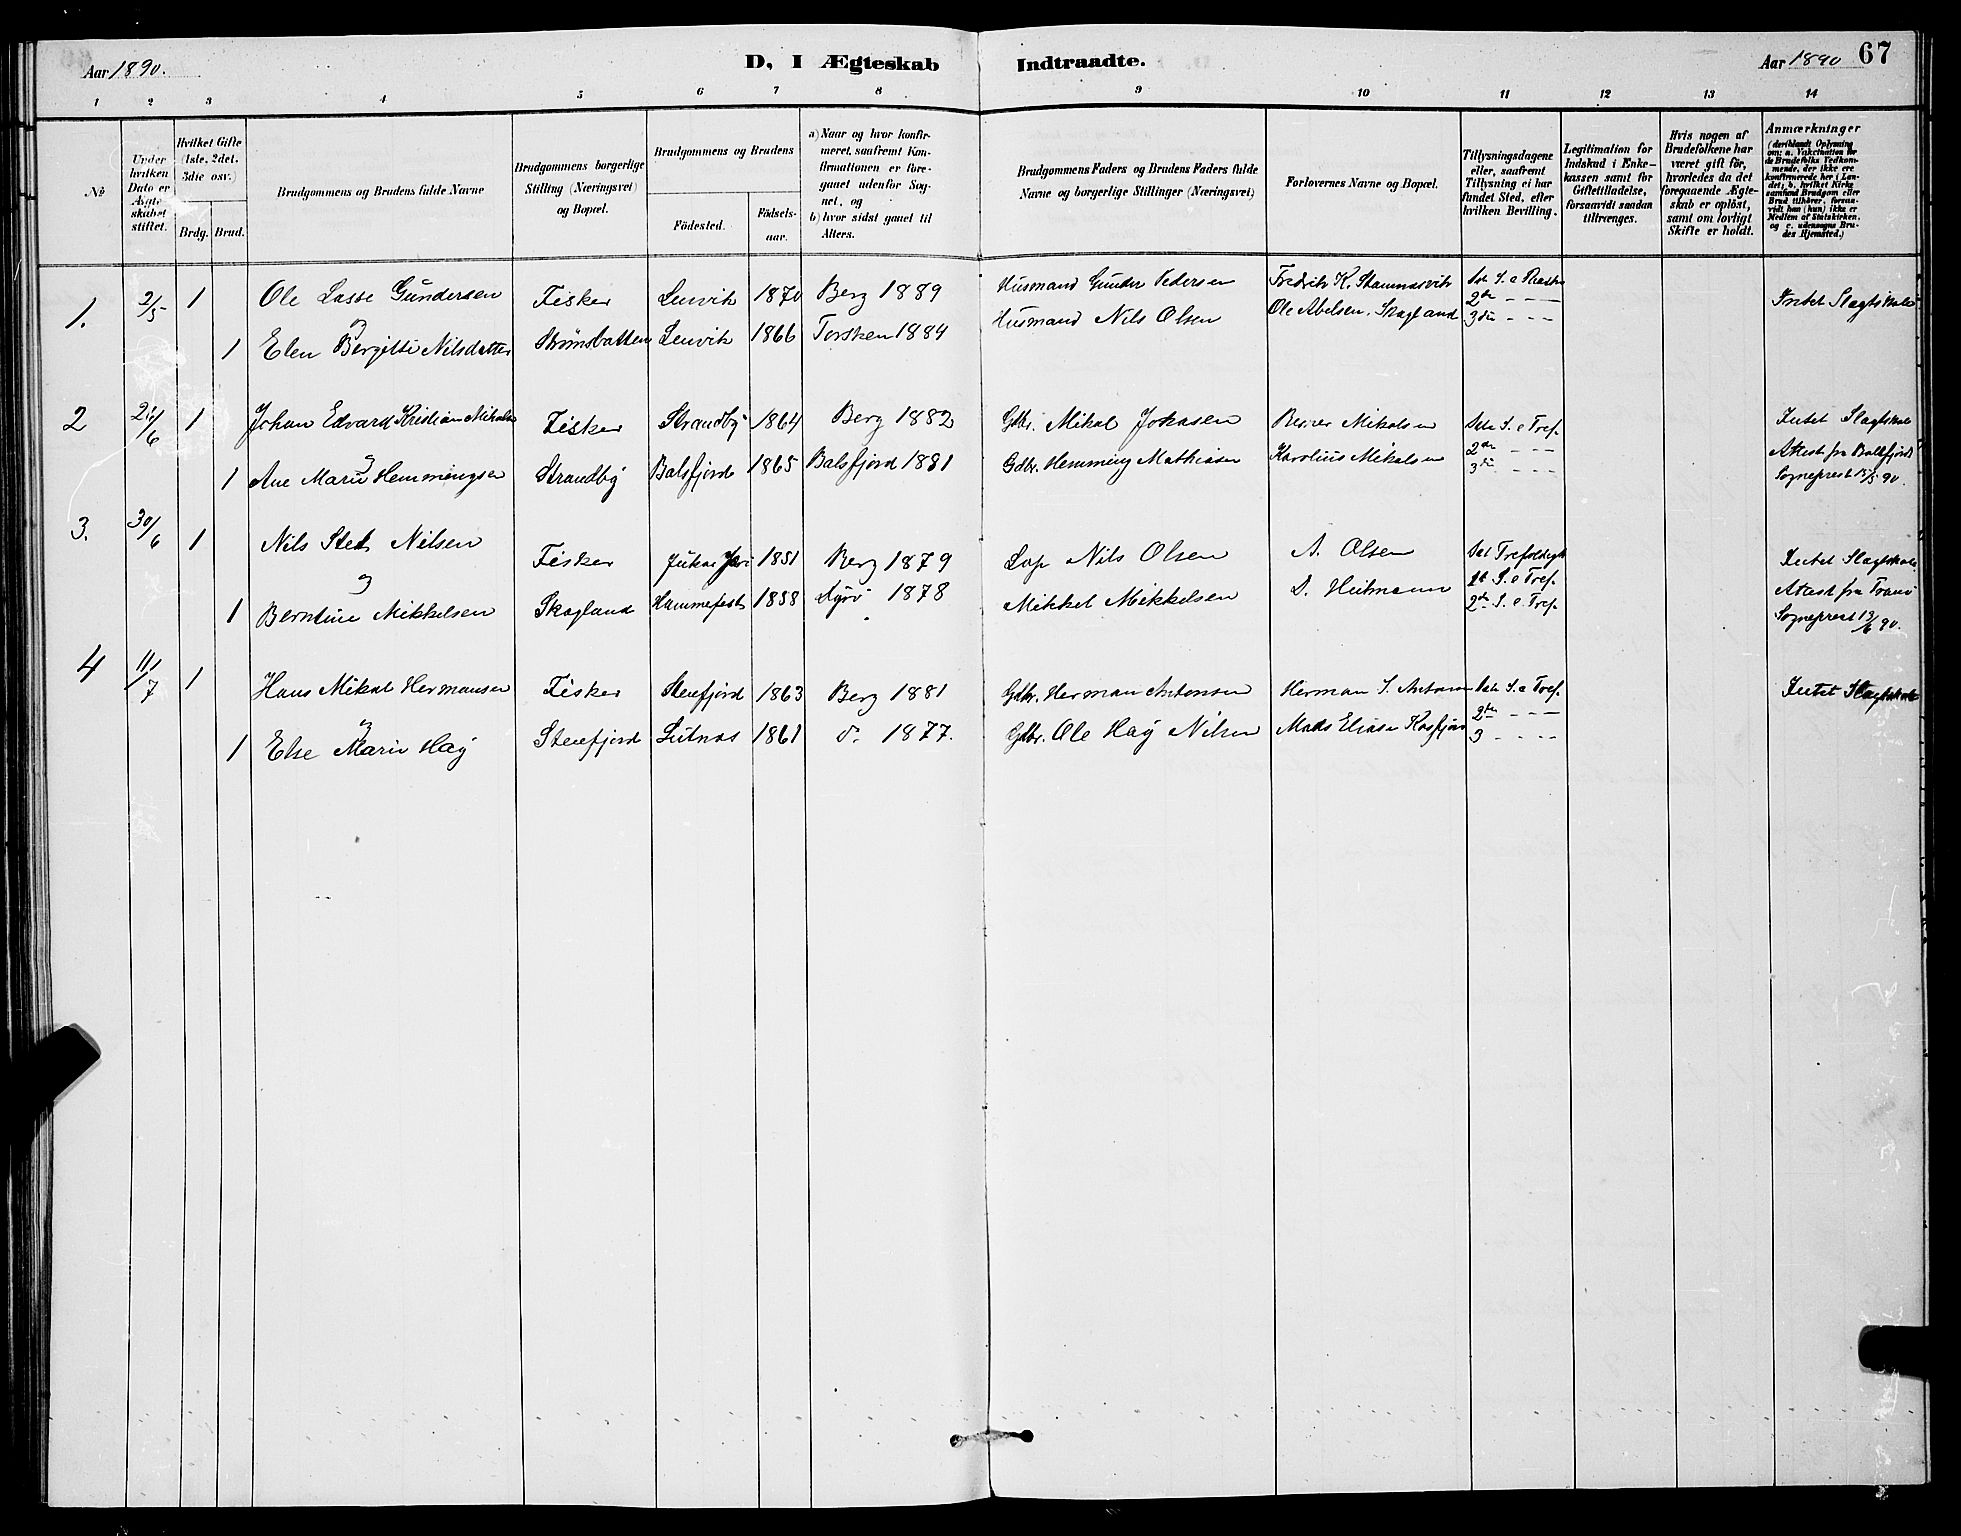 Aar 1890.
D, I Ægteskab Indtraadte.
Aar 1890 67
1 2 3 4 5 6 7 8 9 10 11 12 13 14
No
Under hvilken Dato er Ægteskabet stiftet.
Hvilket Gifte (1ste, 2det, 3die osv.)
Brdg. Brud.
Brudgommens og Brudens fulde Navne
Brudgommens borgerlige Stilling (Næringsvei) og Bopæl.
Brudgommens og Brudens
Födested. Födselsaar.
a) Naar og hvor konfirmeret, saafremt Konfirmationen er foregaaet udenfor Sognet, og
b) hvor sidst gaaet til Alters.
Brudgommens Faders og Brudens Faders fulde Navne og borgerlige Stillinger (Næringsvei)
Forlovernes Navne og Bopæl.
Tillysningsdagene eller, saafremt Tillysning ei har fundet Sted, efter hvilken Bevilling.
Legitimation for Indskud i Enkekassen samt for Giftetilladelse, forsaavidt saadan tiltrænges.
Hvis nogen af Brudefolkene har været gift för, hvorledes da det foregaaende Ægteskab er oplöst, samt om lovligt Skifte er holdt.
Anmærkninger (deriblandt Oplysning om: a. Vakcination for de Brudefolks Vedkommende, der ikke ere konfirmerede her i Landet; b. hvilket Kirkesamfund Brudgom eller Brud tilhörer, forsaavidt han (hun) ikke er Medlem af Statskirken, og c. udensogns Brudes Hjemsted.)
1. 2/5 1 Ole Lasse Gundersen Fisker Lenvik 1870 Berg 1889 Husmand Gunder Pedersen Fredrik K. 1ste S. e Paaske Intet Slagtskab
og
1 Elen Bergitte Nilsdatter Lenvik 1866 Torsken 1884 Husmand Nils Olsen Ole Abelsen, Skagland 2den - - - 3die - - -
2 /6 1 Johan Edvard Kristian Mikalsen Fisker Strandby 1864 Berg 1882 Gdbr. Mikal Johnsen Mikalsen 1ste S. e Tref. Intet Slagtskab
og
1 Ane Marie Hemmingsen Strandby Balsfjord 1865 Balsfjord 1881 Gdbr. Hemming Mathiasen Karolius Mikalsen 2den - - - 3die - - - Attest fra Balsfjord Sogneprest 15/5 90.
3. 30/6 1 Nils Nilsen Fisker 1851 Berg 1879 Nils Olsen A. Olsen Intet Slagtskab
og
1 Berntine Mikkelsen Skagland Hammefest 1858 1878 Mikkel Mikkelsen D. 1st S. e Tref. 2den S. e Tref. Attest fra Tranö Sogneprest 13/6 90.
4 11/7 1 Hans Mikal Hermansen Fisker Stenfjord 1863 Berg 1881 Gdbr. Herman Antonsen Herman S. Antonsen 1ste S. e Tref. Intet Slagtskab
og
1 Else Marie Hag Stenfjord 1861 d. 1877. Gdbr. Ole Hag Nilsen Mads 2den - - - 3 - - - -